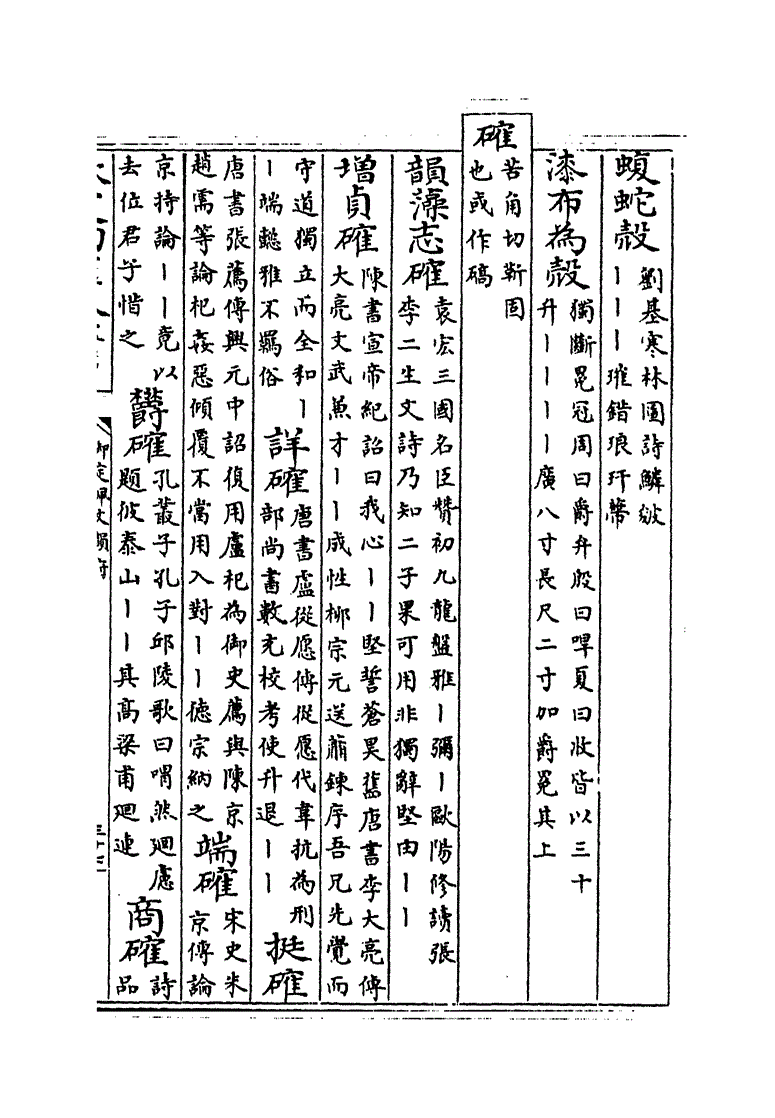 蝮蛇殼 劉基寒林圖詩鱗皴
丨丨丨璀錯琅玕幣
漆布為殼 獨斷冕冠周曰爵弁殷曰哻夏曰收皆以三十
升丨丨丨丨廣八寸長尺二寸加爵冕其上
確 苦角切靳固
也或作碻
韻藻志確 袁宏三國名臣贊初九龍盤雅丨彌丨歐陽修讀張
李二生文詩乃知二子果可用非獨辭堅由丨丨
增貞確 陳書宣帝紀詔曰我心丨丨堅誓蒼昊舊唐書李大亮傳
大亮文武兼才丨丨成性柳宗元送蕭鍊序吾兄先覺而
守道獨立而全和丨
丨端懿雅不羈俗
詳確 唐書盧從愿傳從愿代韋抗為刑
部尚書數充校考使升退丨丨
挺確
唐書張薦傳興元中詔復用盧杞為御史薦與陳京
趙需等論杞姦惡傾覆不當用入對丨丨德宗納之
端確 宋史米
京傳論
京持論丨丨竟以
去位君子惜之
鬱確 孔叢子孔子邱陵歌曰喟然迴慮
題彼泰山丨丨其高梁甫迴連
商確 詩
品
御定佩文韻府